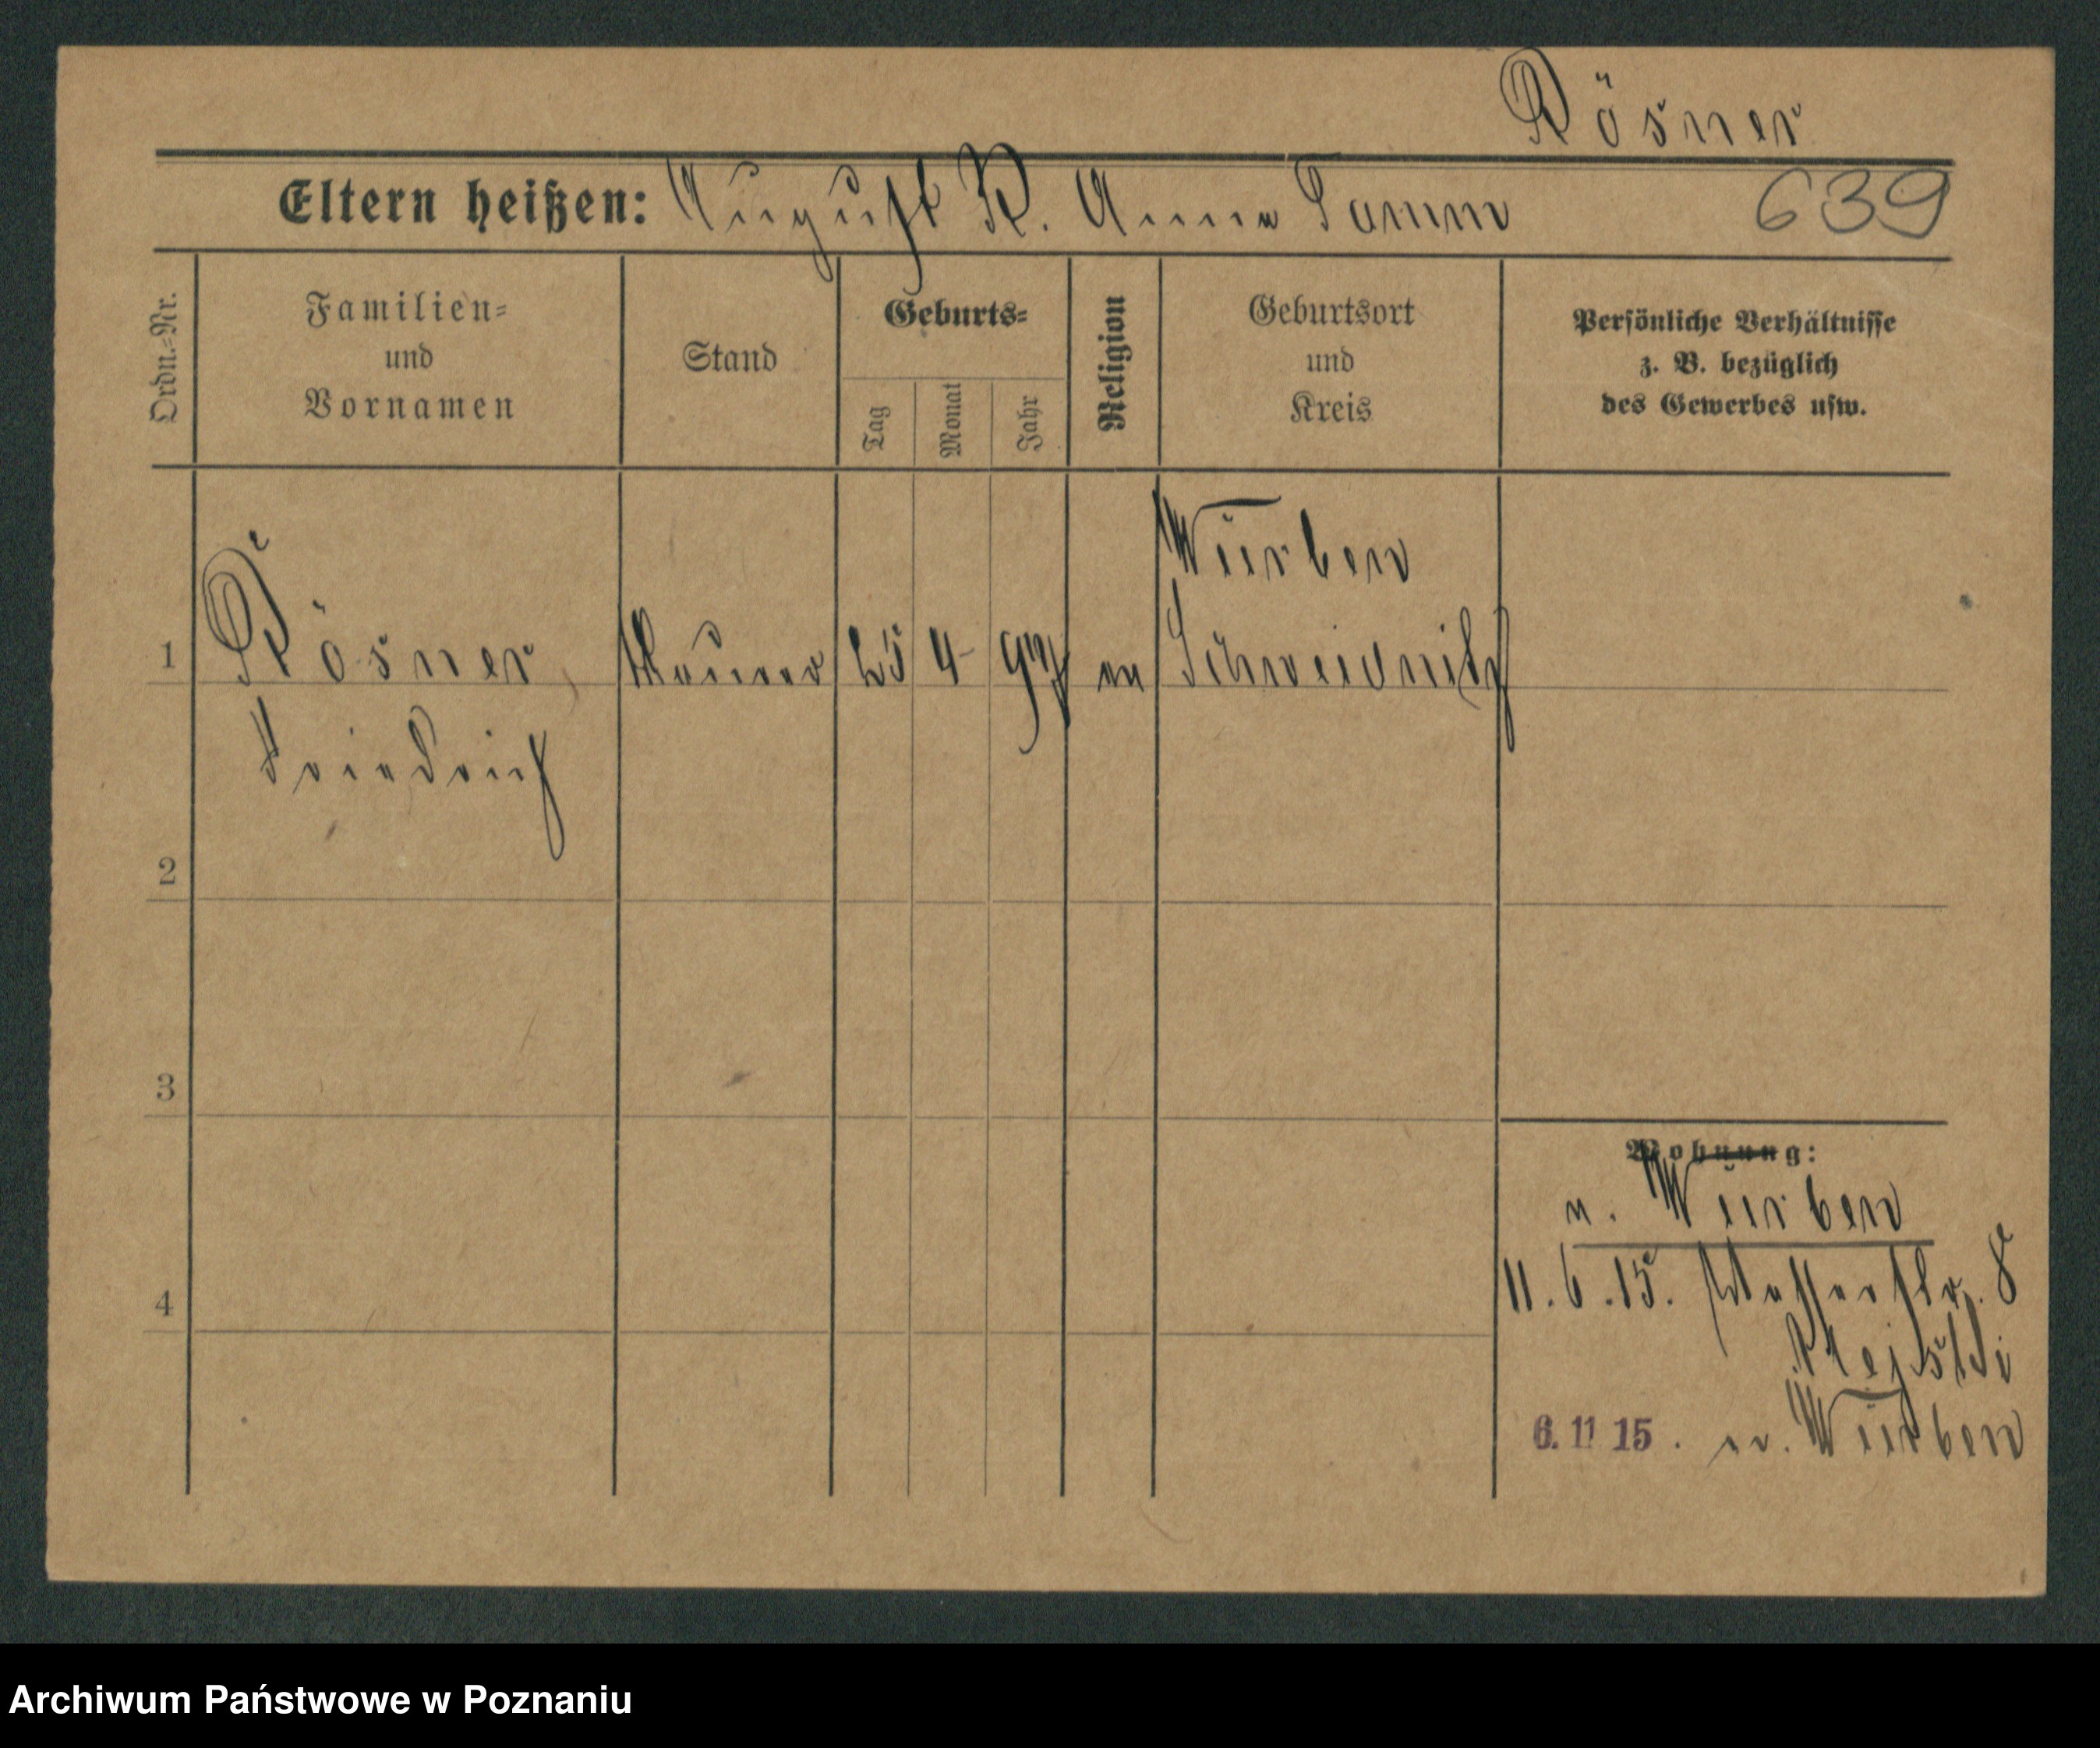 Rösner
Eltern heißen: August R. Anna Tamm 639
Ordn.-Nr.
Familien-
und
Vornamen
Stand
Geburts-
Tag
Monat
Jahr
Religion
Geburtsort
und
Kreis
Persönliche Verhältnisse
z. B. bezüglich
des Gewerbes usw.
Würben
1 Rösner, Maurer 25 4 97 ev Schweidnitz
Friedrich
2
3
4
Wohnung:
n. Würben
11.6.15. Wasserstr. 8
6. 11 15. n. Würben
Archiwum Państwowe w Poznaniu